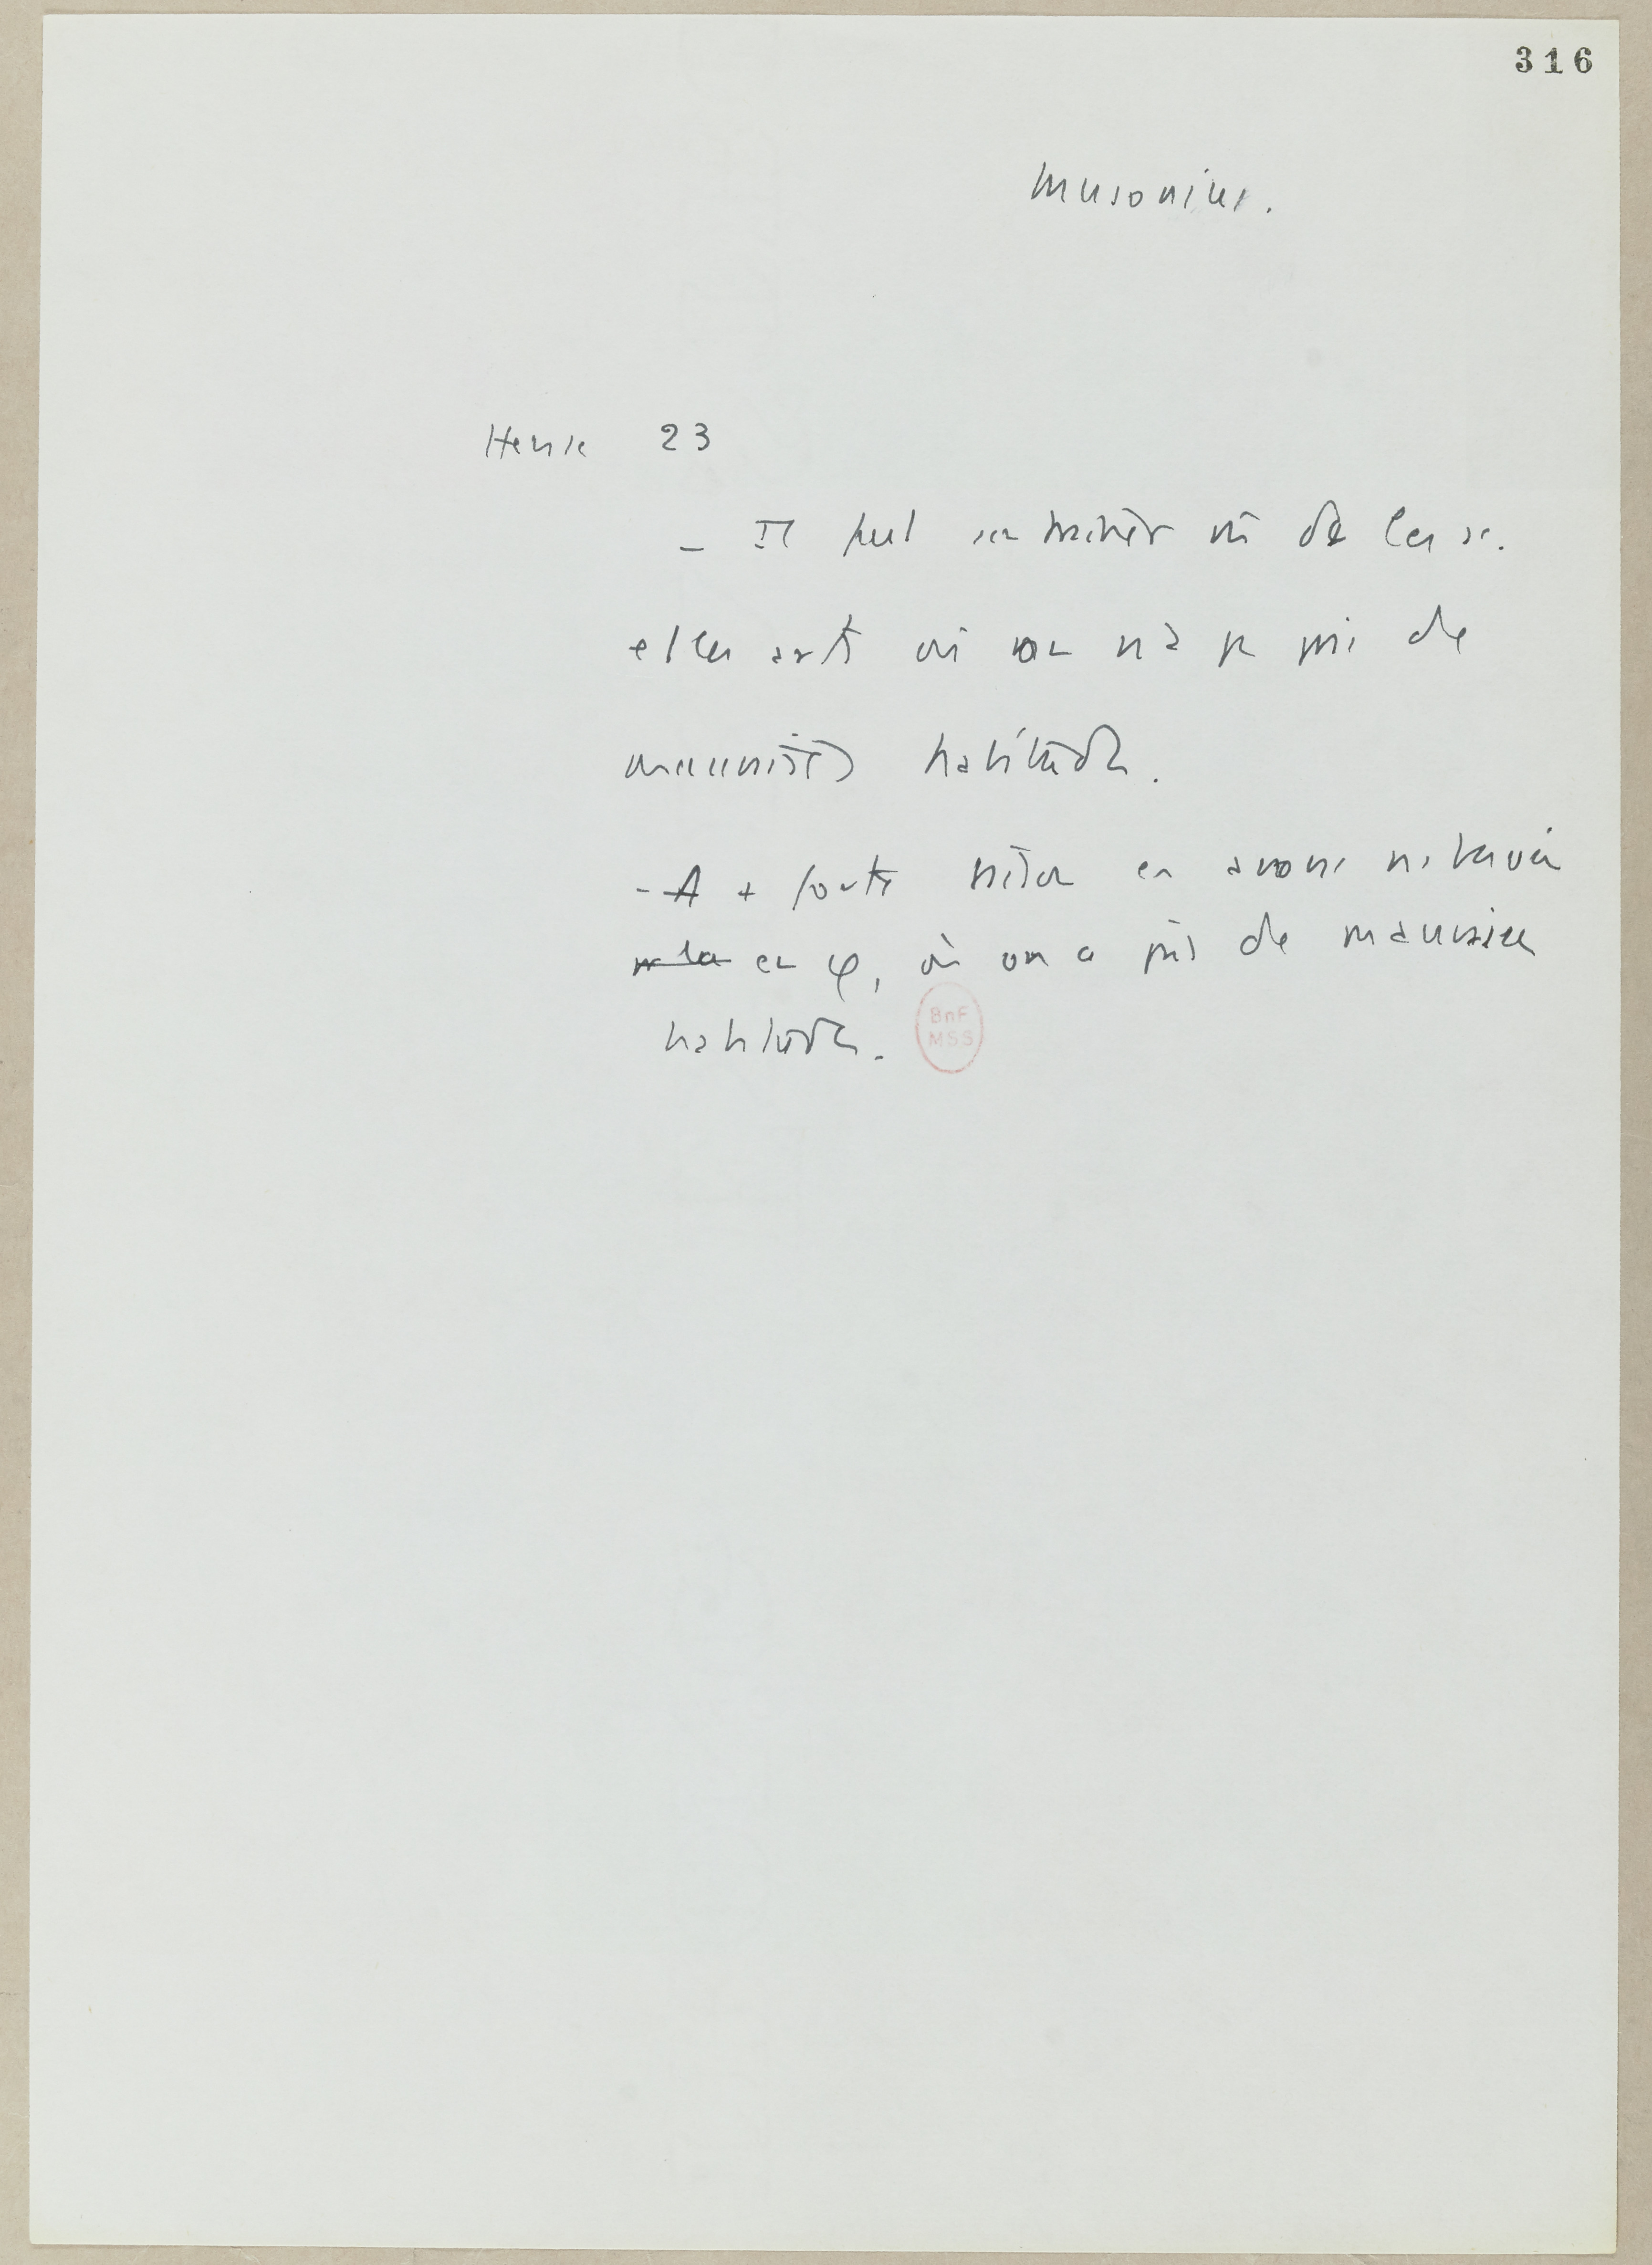 316
Musonius.
Hense 23
- Il faut s'entraîner même de les sc.
et les arts où on n'a pas pris de
mauvaises habitudes.
- A + forte raison en avons ns besoin
en φ, où on a pris de mauvaises
habitudes.
BnF
MSS